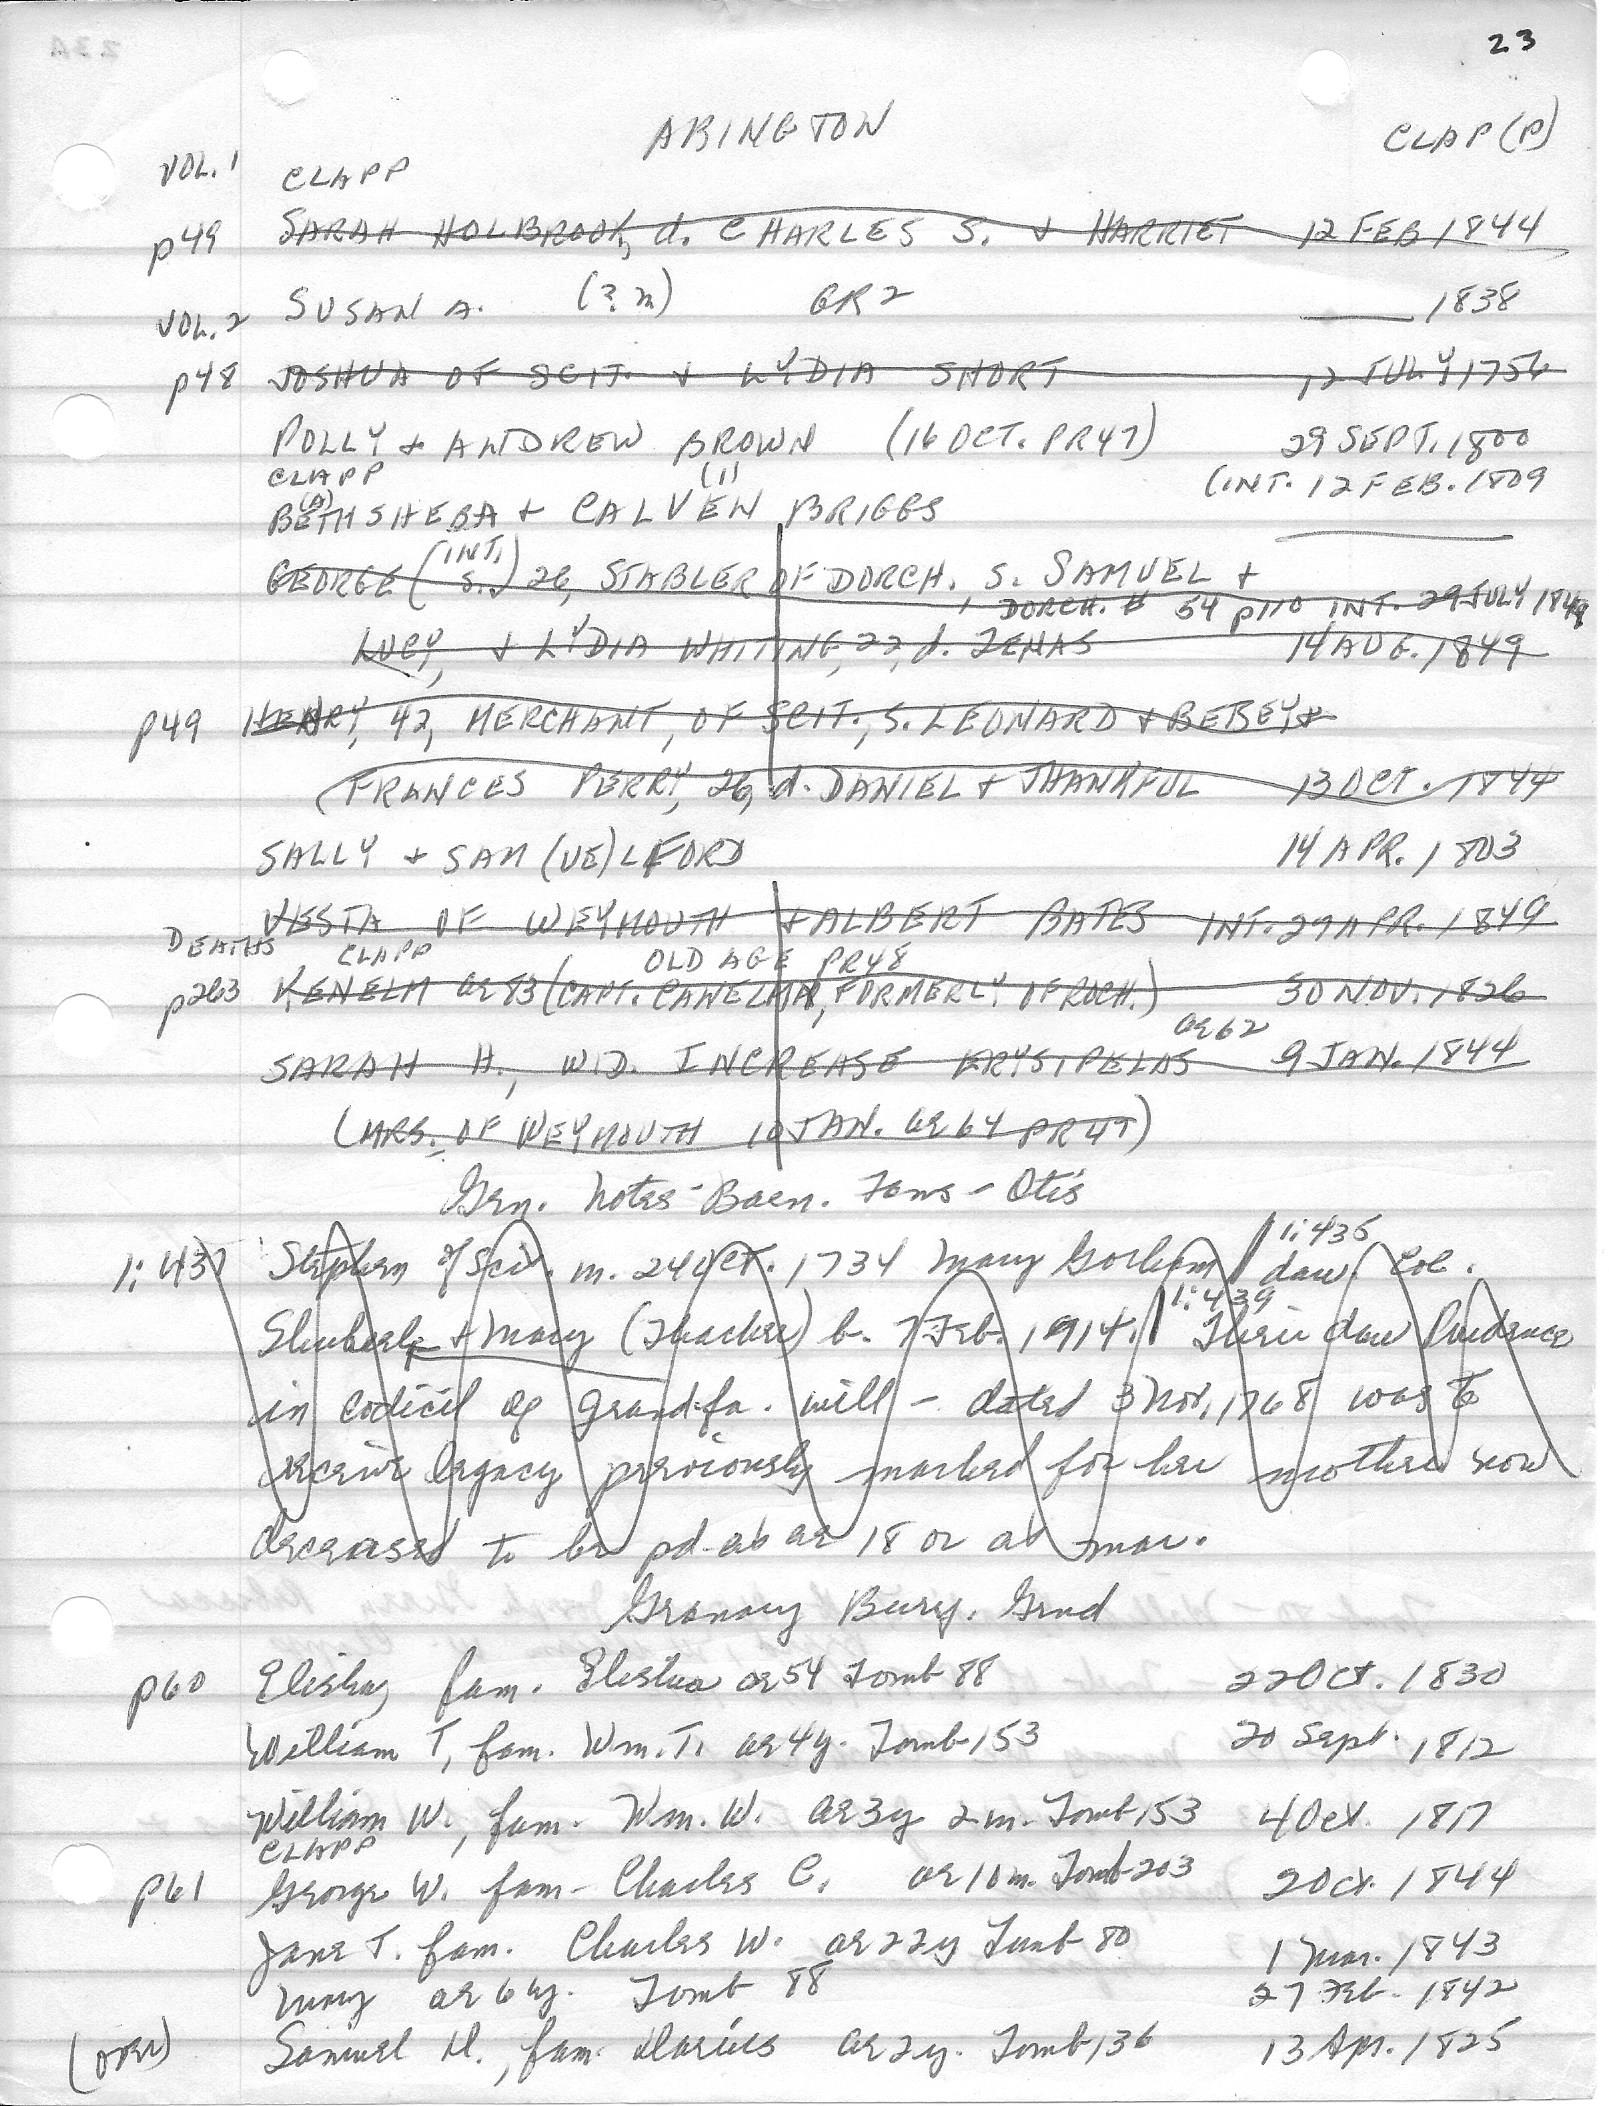 23
ABINGTON CLAP(P)
VOL. 1 CLAPP
p49 SARAH HOLBROOK, d. CHARLES S. + HARRIET 12 FEB 1844
SUSAN A. (? m) GR2 ___ 1838
VOL. 2
p48 JOSHUA OF SCIT. + LYDIA SHORT 12 JULY 1756
POLLY + ANDREW BROWN (16 OCT. PR47) 29 SEPT. 1800
CLAPP (1) (INT. 12 FEB. 1809
BETHSHEBA (A) + CALVEN BRIGGS
GEORGE (INT. S.) 26, STABLER OF DORCH. S. SAMUEL +
DORCH. # 54 p110 INT. 29 JULY 1849
LUCY, + LYDIA WHITING, 22, d. ZENAS 14 AUG. 1849
p49 HENRY, 42, MERCHANT, OF SCIT., S. LEONARD + BEBEY +
(FRANCES PERRY, 26, d. DANIEL + THANKFUL 13 OCT. 1844
SALLY + SAM(UE)L FORD 14 APR. 1803
VESTA OF WEYMOUTH + ALBERT BATES INT. 29 APR. 1849
DEATHS CLAPP OLD AGE PR48
p263 KENELM ae 83 (CAPT. CANELM, FORMERLY OF ROCH.) 30 NOV. 1826
ae 62
SARAH H., WID. INCREASE ERYSIPELAS 9 JAN. 1844
(MRS. OF WEYMOUTH 10 JAN. ae 64 PR47)
Gen. Notes - Barn. Fams - Otis
1:437 Stephen of Scit. m. 24 Oct. 1734 Mary Gorham 1:435 dau. Col.
Shubael + Mary (Thacher) b. 7 Feb. 1914. 1:439 Their dau Prudence
in codicil of grandfa. will - dated 3 Nov. 1768 was to
receive legacy previously marked for her mother now
deceased to be pd. at ae 18 or at mar.
Granary Bury. Grnd
p60 Elisha, fam. Elisha ae 54 Tomb 88 22 Oct. 1830
William T, fam. Wm. T. ae 4y. Tomb 153 20 Sept. 1812
William W., fam. Wm. W. ae 3y 2m. Tomb 153 4 Oct. 1817
CLAPP
p61 George W. fam - Charles C. ae 10m. Tomb 203 2 Oct. 1844
Jane T. fam. Charles W. ae 22y Tomb 80 1 Mar. 1843
Mary ae 6y. Tomb 88 27 Feb. 1842
(over) Samuel D., fam. Darius ae 2y. Tomb 136 13 Apr. 1825